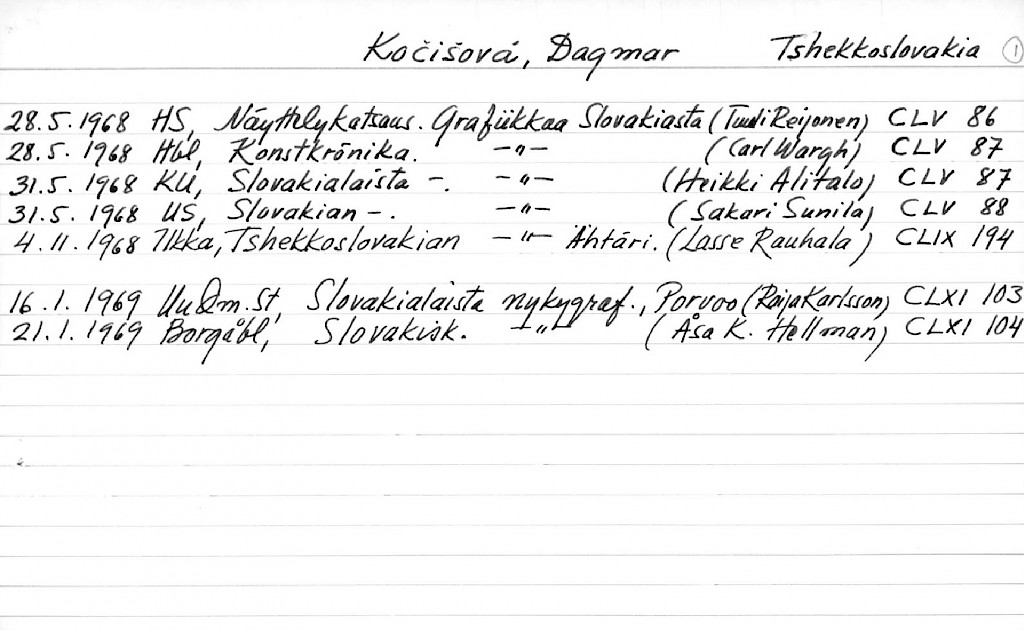 Kočišová, Dagmar Tshekkoslovakia 1
28.5.1968 HS, Näyttelykatsaus. Grafiikkaa Slovakiasta (Tuuli Reijonen) CLV 86
28.5.1968 Hbl, Konstkrönika. -"- (Carl Wargh) CLV 87
31.5.1968 KU, Slovakialaista -. -"- (Heikki Alitalo) CLV 87
31.5.1968 US, Slovakian -. -"- (Sakari Sunila) CLV 88
4.11.1968 Ilkka, Tshekkoslovakian -"- Ähtäri. (Lasse Rauhala) CLIX 194
16.1.1969 Uudm.St, Slovakialaista nykygraf., Porvoo (Raija Karlsson) CLXI 103
21.1.1969 Borgåbl, Slovakisk. -"- (Åsa K. Hellman) CLXI 104